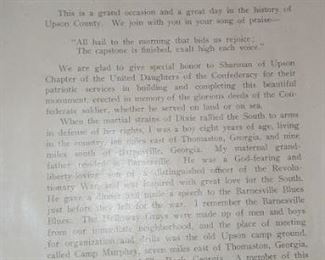 This is a grand occasion and a great day in the history of
Upson County. We join with you in your song of praise—
"All hail to the morning that bids us rejoice;
The capstone is finished, exalt high each voice."
We are glad to give special honor to Sharman of Upson
Chapter of the United Daughters of the Confederacy for their
patriotic services in building and completing this beautiful
monument, erected in memory of the glorious deeds of the Con-
federate soldier, whether he served on land or on sea.
When the martial strains of Dixie rallied the South to arms
in defense of her rights, I was a boy eight years of age, living
in the country, ten miles east of Thomaston, Georgia, and nine
miles south of Barnesville, Georgia. My maternal grand-
father resided in Barnesville. He was a God-fearing and
liberty-loving son of a distinguished officer of the Revolu-
tionary War, and was inspired with great love for the South.
He gave a dinner and made a speech to the Barnesville Blues
just before they left for the war. I remember the Barnesville
Blues. The Holloway Grays were made up of men and boys
from our immediate neighborhood, and the place of meeting
for organization and drills was the old Upson camp ground,
called Camp Murphey, seven miles east of Thomaston, Georgia,
Georgia. A member of this